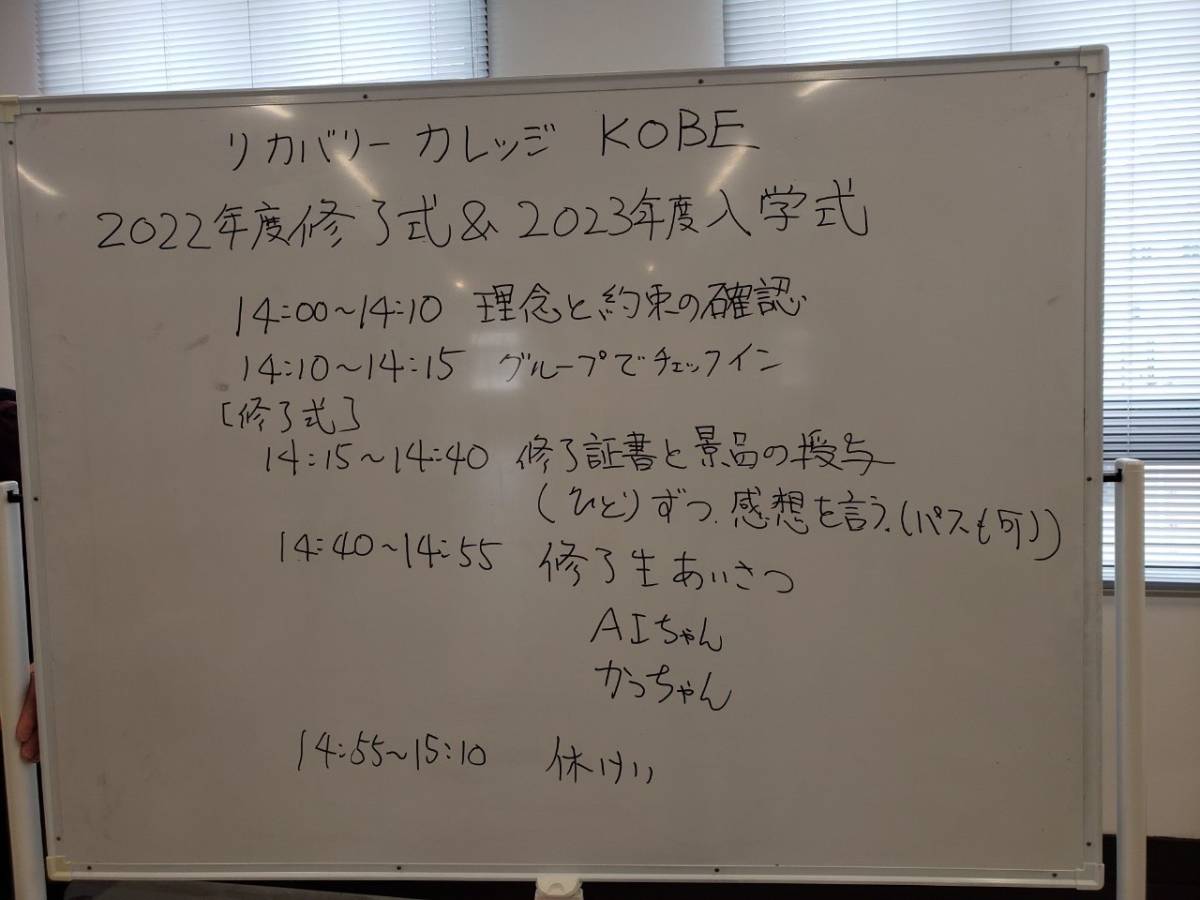 リカバリーカレッジ KOBE
2022年度修了式&2023年度入学式
14:00~14:10 理念と約束の確認
14:10~14:15 グループでチェックイン
[修了式]
14:15~14:40 修了証書と景品の授与
(ひとりずつ、感想を言う。(パスも可))
14:40~14:55 修了生あいさつ
AIちゃん
かっちゃん
14:55~15:10 休けい